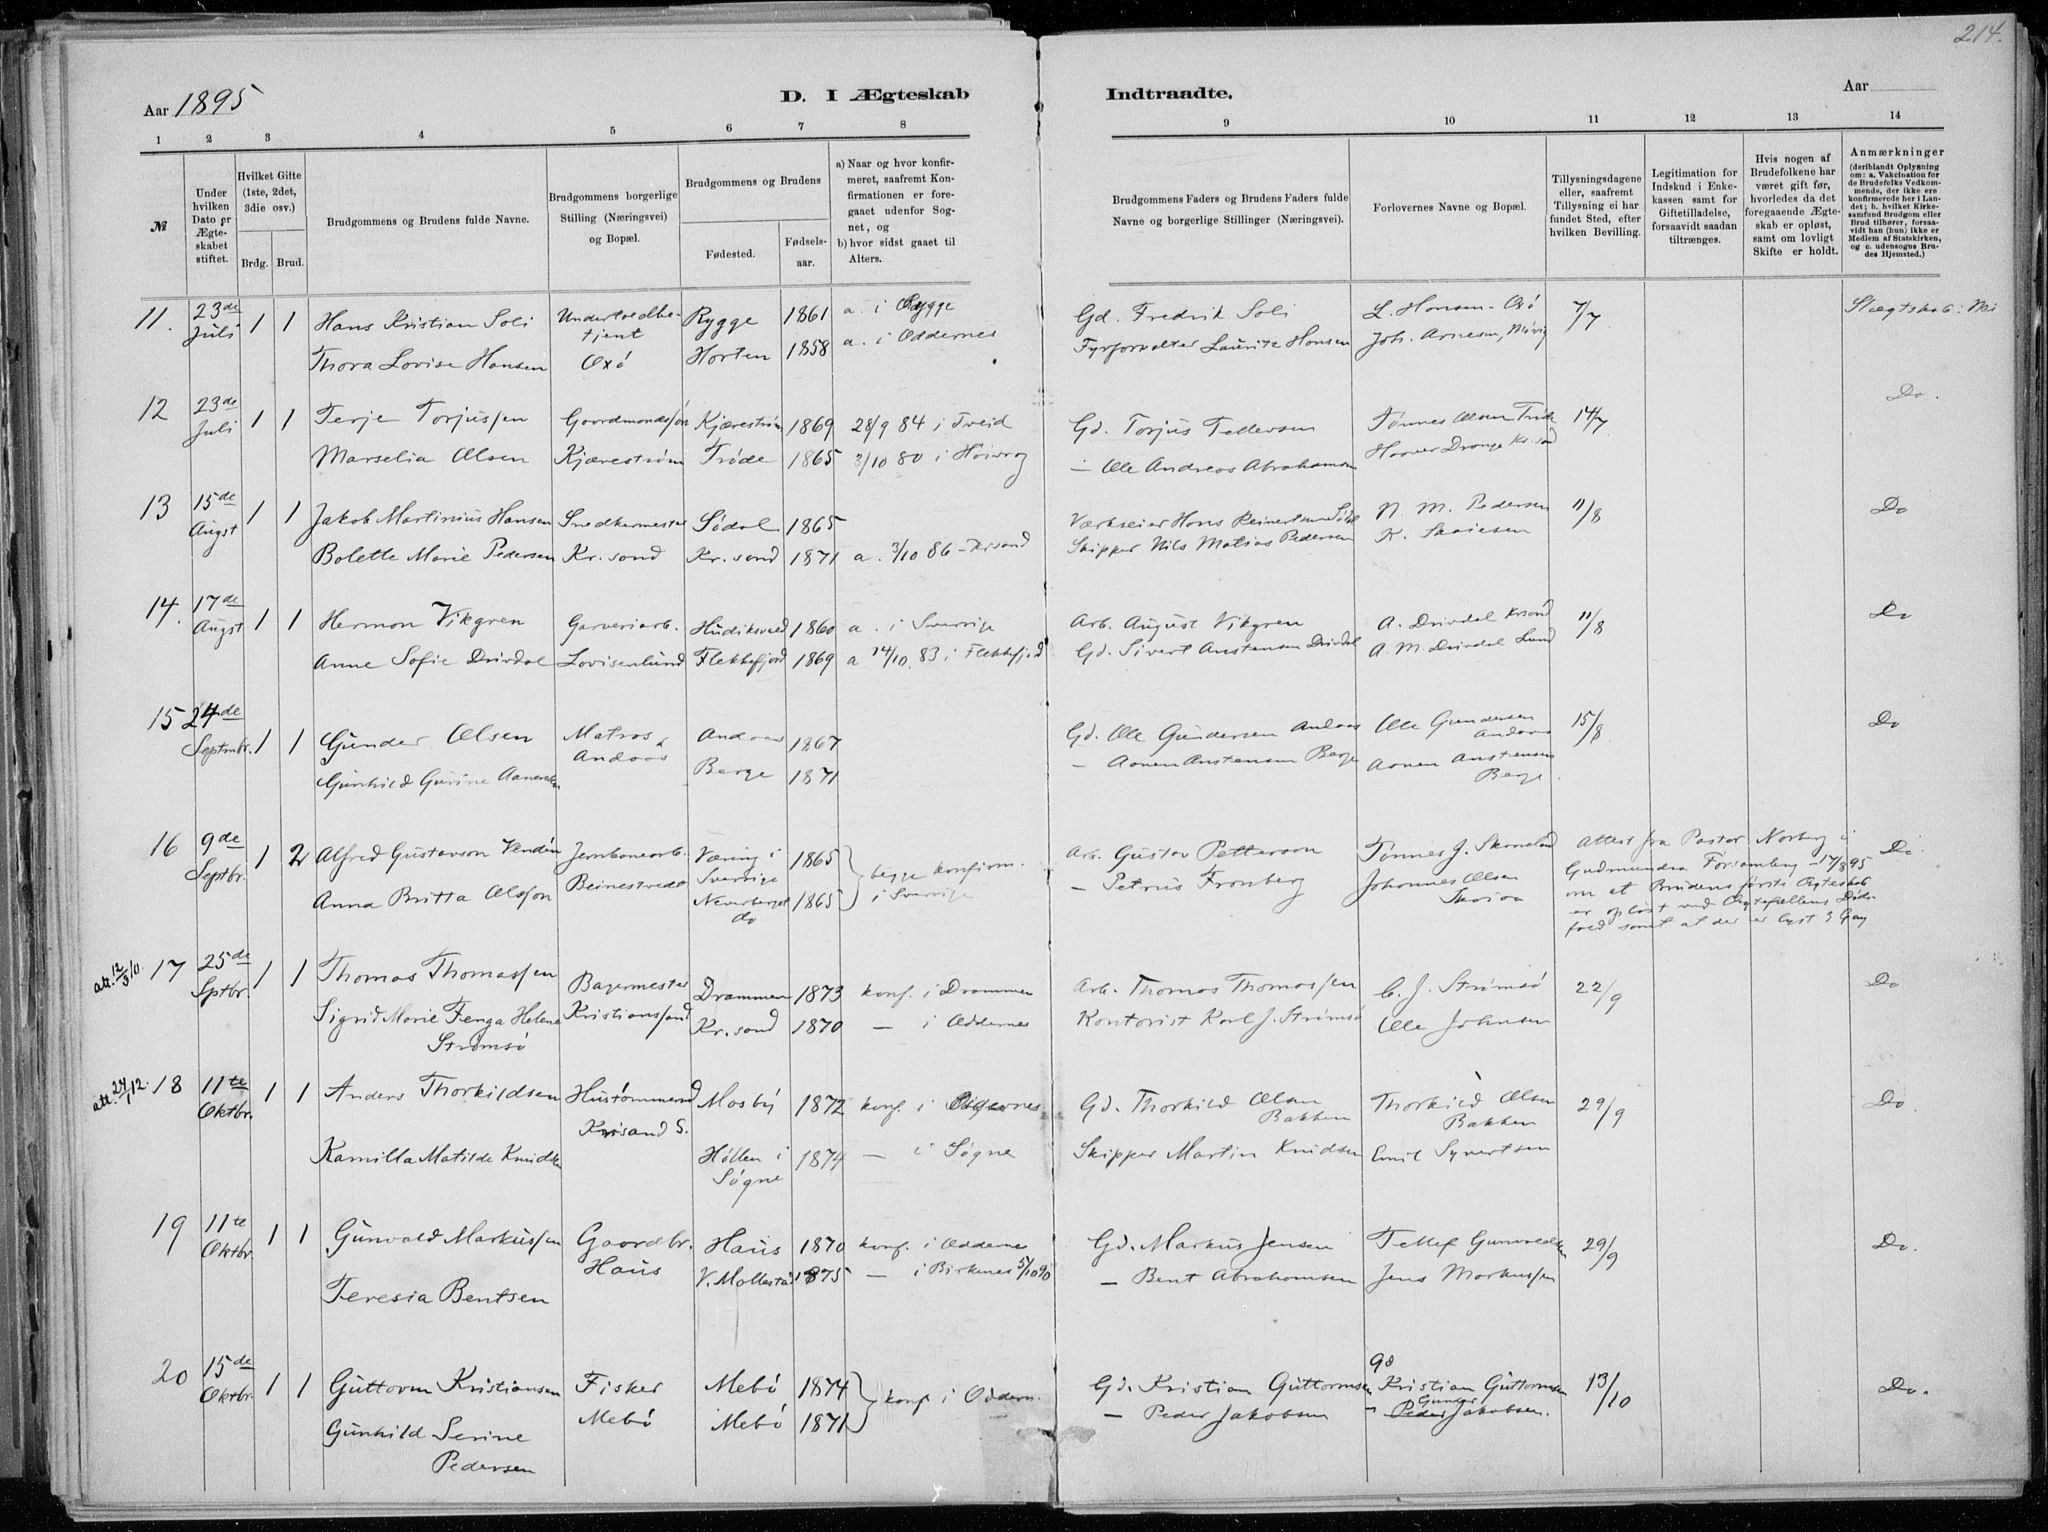 214.
Aar 1895
D. I Ægteskab Indtraadte.
Aar
1 2 3 4 5 6 7 8 9 10 11 12 13 14
№
Under hvilken Dato er Ægteskabet stiftet.
Hvilket Gifte (1ste, 2det, 3die osv.)
Brdg. Brud.
Brudgommens og Brudens fulde Navne.
Brudgommens borgerlige Stilling (Næringsvei) og Bopæl.
Brudgommens og Brudens
Fødested.
Fødselsaar.
a) Naar og hvor konfirmeret, saafremt Konfirmationen er foregaaet udenfor Sognet, og
b) hvor sidst gaaet til Alters.
Brudgommens Faders og Brudens Faders fulde Navne og borgerlige Stillinger (Næringsvei).
Forlovernes Navne og Bopæl.
Tillysningsdagene eller, saafremt Tillysning ei har fundet Sted, efter hvilken Bevilling.
Legitimation for Indskud i Enkekassen samt for Giftetilladelse, forsaavidt saadan tiltrænges.
Hvis nogen af Brudefolkene har været gift før, hvorledes da det foregaaende Ægteskab er opløst, samt om lovligt Skifte er holdt.
Anmærkninger (deriblandt Oplysning om: a. Vakcination for de Brudefolks Vedkommende, der ikke ere konfirmerede her i Landet; b. hvilket Kirkesamfund Brudgom eller Brud tilhører, forsaavidt han (hun) ikke er Medlem af Statskirken, og c. udensogns Brudes Hjemsted.)
11. 23de Juli 1 1 Hans Kristian Soli Undertoldbetjent Rygge 1861 a. i Rygge Gd. Fredrik Soli L. Hansen - Oxö 7/7 Slægtskab:
Thora Lovise Hansen Oxö Horten 1858 a. i Oddernes Fyrforvalter Lauritz Hansen Joh. Arnesen,
12 23de Juli 1 1 Terje Torjussen Gaardmandssøn Kjærestrøm 1869 28/9 84 i Tveid Gd. Torjus Tellefsen Tønnes Olsen 14/7 Do.
Marselia Olsen Kjærestrøm Trøde 1865 3/10 80 i Høivaag — Ole Andreas Abrahamsen
13 15de Augst 1 1 Jakob Martinius Hansen Snedkermester Sødal 1865 Værkseier Hans Reinertsen Sødal N. M. Pedersen 11/8 Do
Bolette Marie Pedersen Kr.sand Kr.sand 1871 a. 3/10 86 - Krsand Skipper Nils Matias Pedersen K.
14. 17de Augst 1 1 Herman Vikgren Garveriarb. Hudiksvald 1860 a. i Sverrige Arb. August Vikgren A. Drivdal Krsand 11/8 Do
Anne Sofie Drivdal Lovisenlund Flekkefjord 1869 a 14/10. 83 i Flekkefjord Gd. Sivert Anstensen Drivdal A. M. Drivdal Lund
15 24de Septmbr. 1 1 Gunder Olsen Matros Andaas 1867 Gd. Ole Gundersen Andaas Ole Gundersen Andaas 15/8 Do
Gunhild Gurine Aanensen Andaas Berge 1871 — Aanen Anstensen Berge Aanen Anstensen Berge.
16 9de Septbr. 1 2 Alfred Gustavson Vendén Jernbanearb. Væring i Sverrige 1865 begge konfirm. i Sverrige Arb. Gustav Petterson Tønnes J. Skaraland Attest fra Pastor Norberg i Gudmundra Forsamling - 17/8 95 om at Brudens første Ægteskab er opløst ved Ægtefællens Død samt at der er lyst 3 Gang Do.
Anna Britta Olsson Beinestvedt Do 1865 — Petrus Fronberg Johannes Olsen
att. 12/3 10. 17 25de Sptbr. 1 1 Thomas Thomassen Bagermester Drammen 1873 konf. i Drammen Arb. Thomas Thomassen C. J. Strømsø 22/9 Do
Sigrid Marie Fenga Helene Strømsø Kristianssand Kr.sand 1870 — i Oddernes Kontorist Karl J. Strømsø Ole Johnsen
att. 24/1 12. 18 11te Oktbr. 1 1 Anders Thorkildsen Hustømmermand Mosby 1872 konf. i Oddernes Gd. Thorkild Olsen Bakken Thorkild Olsen Bakken 29/9 Do.
Kamilla Matilde Knudsen Krisand S. Høllen i Søgne 1874 — i Søgne Skipper Martin Knudsen Emil Syvertsen
19 11te Oktbr. 1 1 Gunvald Markussen Gaardbr. Haus 1870 konf. i Oddernes Gd. Markus Jensen Tellef Gunvaldsen 29/9 Do.
Teresia Bentsen Haus V. Mollestad 1875 — i Birkenes 5/10 90 — Bent Abrahamsen Jens Markussen
20 15de Oktbr. 1 1 Guttorm Kristiansen Fisker Mebø 1874 konf i Oddern. Gd. Kristian Guttormsen Gd Kristian Guttormsen 13/10 Do.
Gunhild Serine Pedersen Mebø Mebø 1871 — Peder Jakobsen — Peder Gunder Jakobsen.